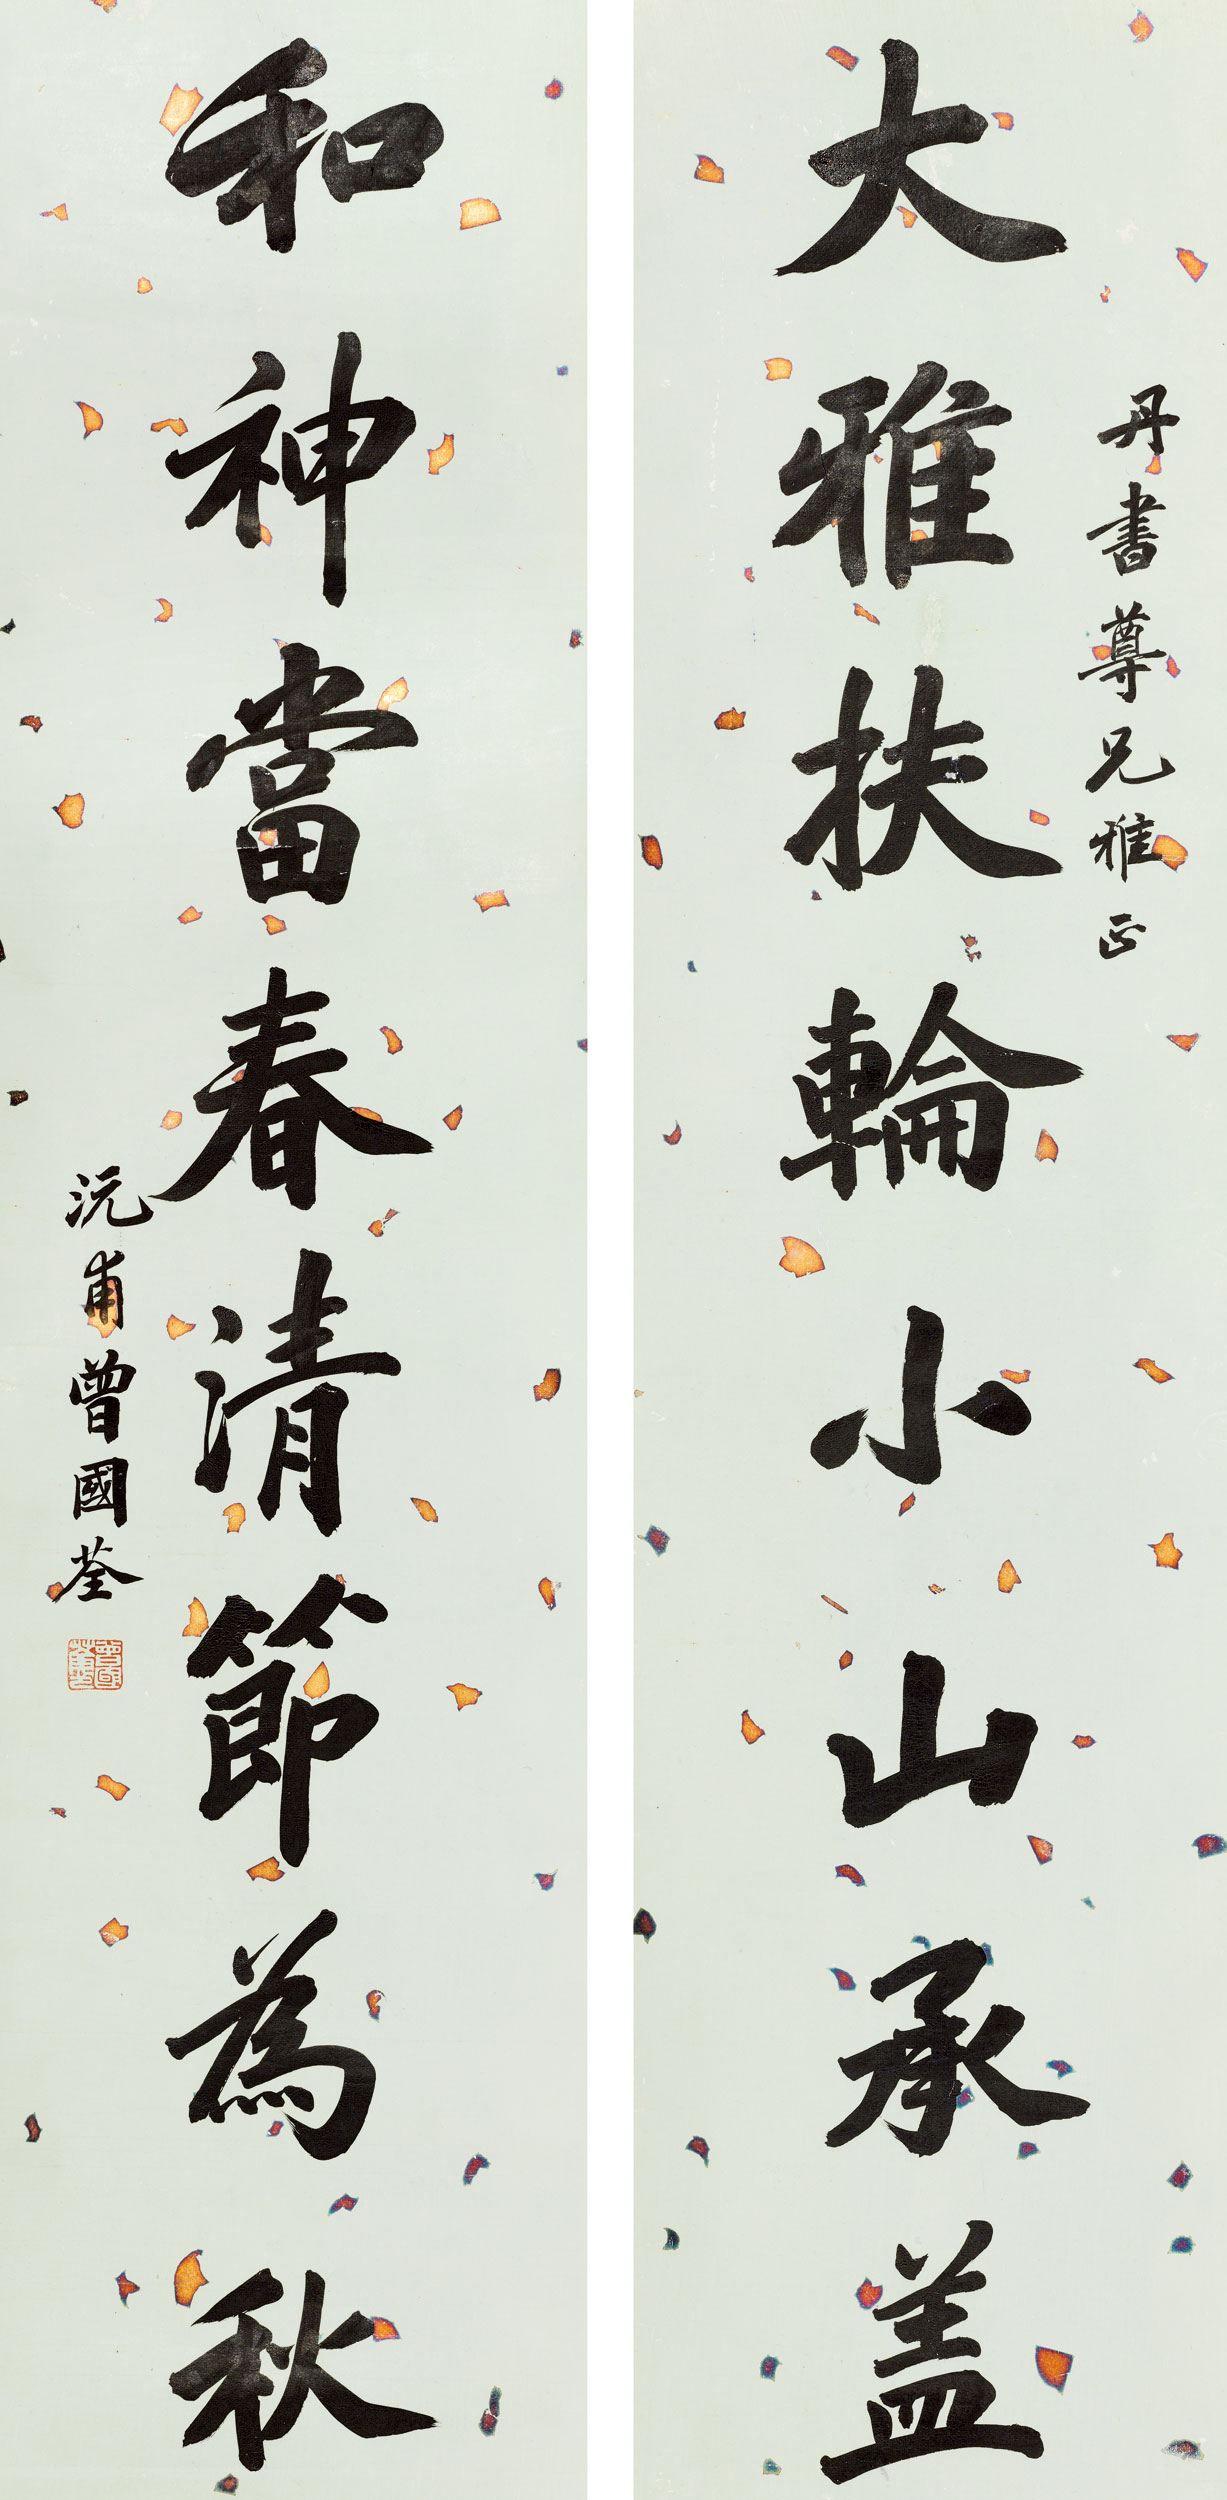 丹書尊兄雅正
大雅扶輪小山承盖
和神當春清節為秋
沅甫曾國荃